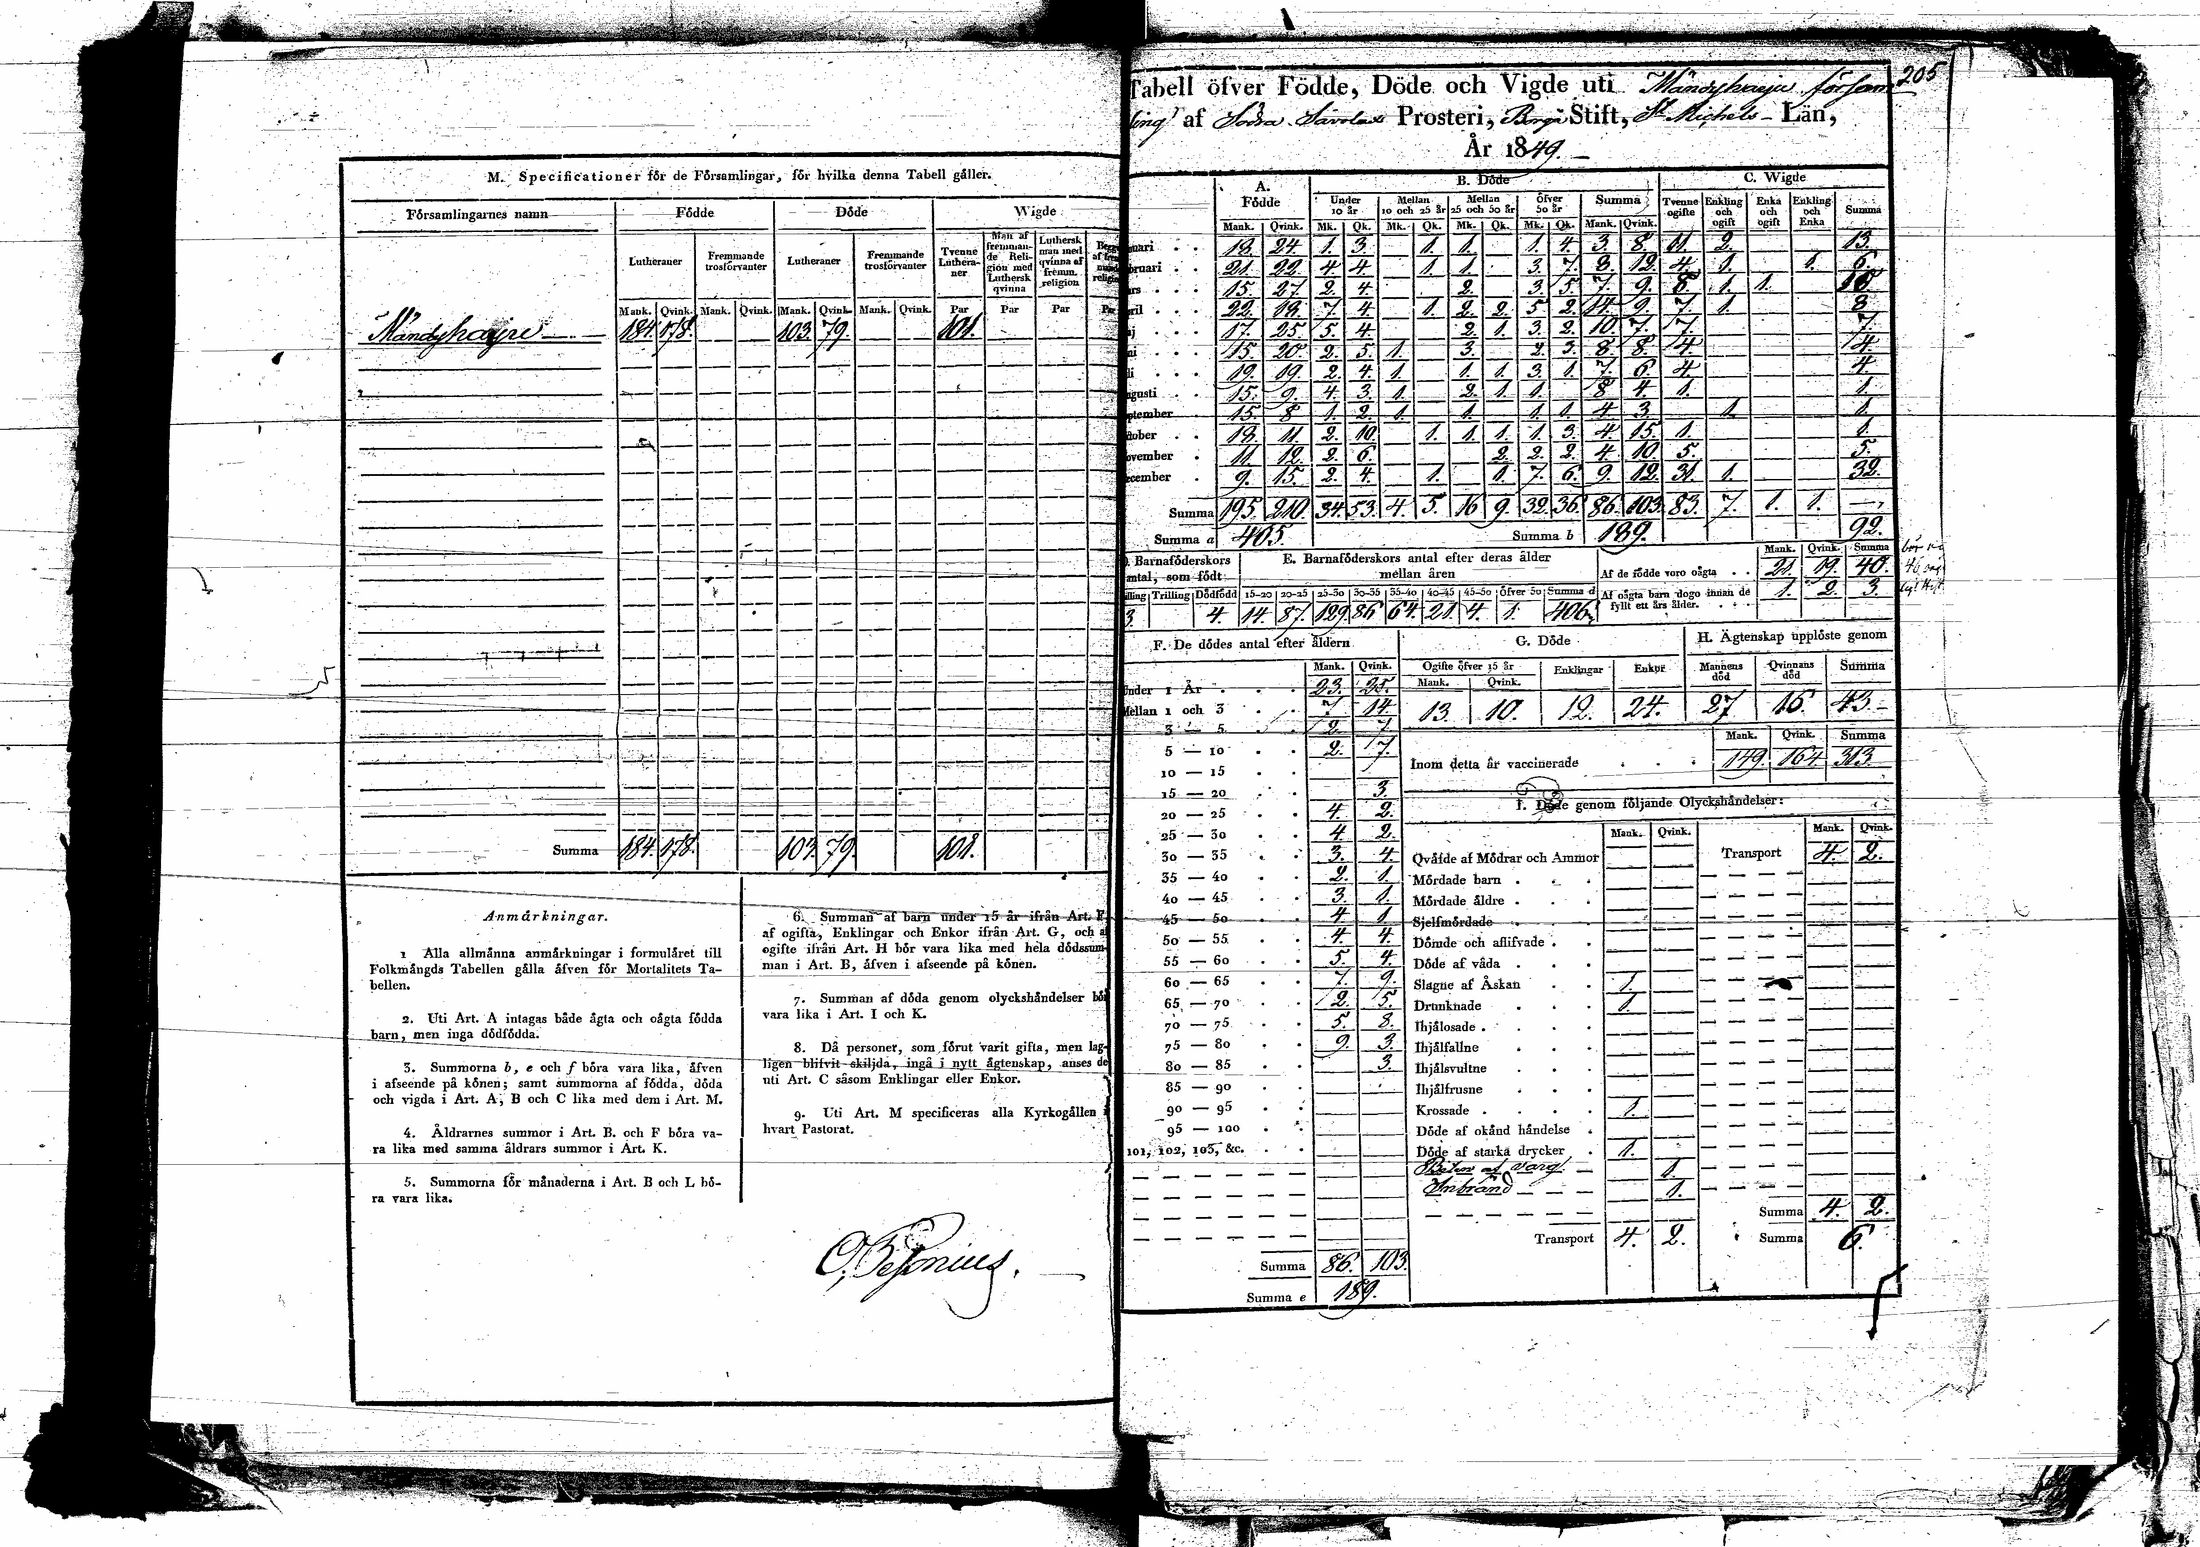 M. Specificationer för de Församlingar, för hvilka denna Tabell gäller.
Församlingarnes namn Födde Döde Wigde
Lutheraner Fremmande trosförvanter Lutheraner Fremmande trosförvanter Tvenne Lutheraner Man af fremmande Religion med Luthersk qvinna Luthersk man med qvinna af fremm. religion
Mank. Qvink. Mank. Qvink. Mank. Qvink. Mank. Qvink. Par Par Par
Mändyharju 184. 178. 103. 79. 101.
Summa 184. 178. 103. 79. 101.
Anmärkningar.
1 Alla allmänna anmärkningar i formuläret till
Folkmängds Tabellen gälla äfven för Mortalitets Ta-
bellen.
2. Uti Art. A intagas både ägta och oägta födda
barn, men inga dödfödda.
3. Summorna b, e och f böra vara lika, äfven
i afseende på könen; samt summorna af födda, döda
och vigda i Art. A, B och C lika med dem i Art. M.
4. Åldrarnes summor i Art. B. och F böra va-
ra lika med samma åldrars summor i Art. K.
5. Summorna för månaderna i Art. B och L bö-
ra vara lika.
6. Summan af barn under 15 år ifrån Art. F.
af ogifta, Enklingar och Enkor ifrån Art. G, och af
ogifte ifrån Art. H bör vara lika med hela dödssum-
man i Art. B, äfven i afseende på könen.
7. Summan af döda genom olyckshändelser bör
vara lika i Art. I och K.
8. Då personer, som förut varit gifta, men lag-
ligen blifvit skiljda, ingå i nytt ägtenskap, anses de
uti Art. C såsom Enklingar eller Enkor.
9. Uti Art. M specificeras alla Kyrkogällen i
hvart Pastorat.
205
Tabell öfver Födde, Döde och Vigde uti Mändyharju försam
ling af Södra Savolax Prosteri, Borgå Stift, St Michels Län,
År 1849.
A. Födde B. Döde C. Wigde
Under 10 år Mellan 10 och 25 år Mellan 25 och 50 år Öfver 50 år Summa Tvenne ogifte Enkling och ogift Enka och ogift Enkling och Enka Summa
Mank. Qvink. Mk. Qk. Mk. Qk. Mk. Qk. Mk. Qk. Mank. Qvink.
nuari 18. 24 1. 3. 1. 1. 1. 4 3. 8. 11. 2. 13.
bruari 21. 22. 4. 4. 1. 1. 3. 7. 8. 12. 4. 1. 1. 6.
ars 15. 27. 2. 4. 2. 3. 5. 7. 9. 8. 1. 1. 10.
pril 22. 18. 7. 4. 1. 2. 2. 5 2. 14. 9. 7. 1. 8
aj 17. 25. 5. 4. 2. 1. 3. 2. 10. 7. 7. 7.
ni 15. 20. 2. 5. 1. 3. 2. 3. 8. 8. 4. 4.
li 19. 19. 2. 4. 1. 1. 1. 3. 1. 7. 6. 4. 4.
ugusti 15. 9. 4. 3. 1. 2. 1. 1. 8 4. 1. 1.
ptember 15. 8 1. 2. 1. 1. 1. 1. 4 3. 1. 1.
ktober 18. 11. 2. 10. 1. 1. 1. 1. 3. 4. 15. 1. 1.
ovember 11. 12. 2. 6. 2. 2. 2. 4. 10. 5. 5.
ecember 9. 15. 2. 4. 1. 1. 7. 6. 9. 12. 31. 1. 32.
Summa 195. 210. 34. 53. 4. 5. 16 9. 32. 36. 86. 103. 83. 7. 1. 1.
Summa a 405 Summa b 189. 92.
D. Barnaföderskors antal, som födt E. Barnaföderskors antal efter deras ålder mellan åren
Mank. Qvink. Summa
Af de födde voro oägta 21. 19. 40.
Af oägta barn dogo innan de fyllt ett års ålder. 1. 2. 3.
illing Trilling Dödfödd 15–20 20–25 25–30 30–35 35–40 40–45 45–50 öfver 50 Summa d
3. 4. 14. 87. 129. 86 64. 21. 4. 1. 406.
F. De dödes antal efter åldern G. Döde H. Ägtenskap upplöste genom
Mank. Qvink. Ogifte öfver 15 år Enklingar Enkor Mannens död Qvinnans död Summa
Mank. Qvink.
13. 10. 12. 24. 27 16. 43.
Under 1 År 23. 25.
Mellan 1 och 3 7 14.
3 — 5 2. 7.
5 — 10 2. 7.
10 — 15
15 — 20 3.
20 — 25 4. 2.
25 — 30 4. 2.
30 — 35 3. 4.
35 — 40 2. 1.
40 — 45 3. 1.
45 — 50 4 1.
50 — 55 4. 4.
55 — 60 5. 4.
60 — 65 7. 9.
65 — 70 2. 5.
70 — 75 5. 8.
75 — 80 9. 3.
80 — 85 3.
85 — 90
90 — 95
95 — 100
101, 102, 103, &c.
Summa 86. 103.
Summa e 189.
Mank. Qvink. Summa
Inom detta år vaccinerade 149. 164 313.
I. Döde genom följande Olyckshändelser:
Mank. Qvink. Mank. Qvink.
Qväfde af Mödrar och Ammor Transport 4. 2.
Mördade barn
Mördade äldre
Sjelfmördade
Dömde och aflifvade
Döde af våda
Slagne af Åskan 1.
Drunknade 1.
Ihjälosade
Ihjälfallne
Ihjälsvultne
Ihjälfrusne
Krossade 1.
Döde af okänd händelse
Döde af starka drycker 1.
Biten af varg 1.
Inbränd 1.
Summa 4. 2.
Transport 4. 2. Summa 6.